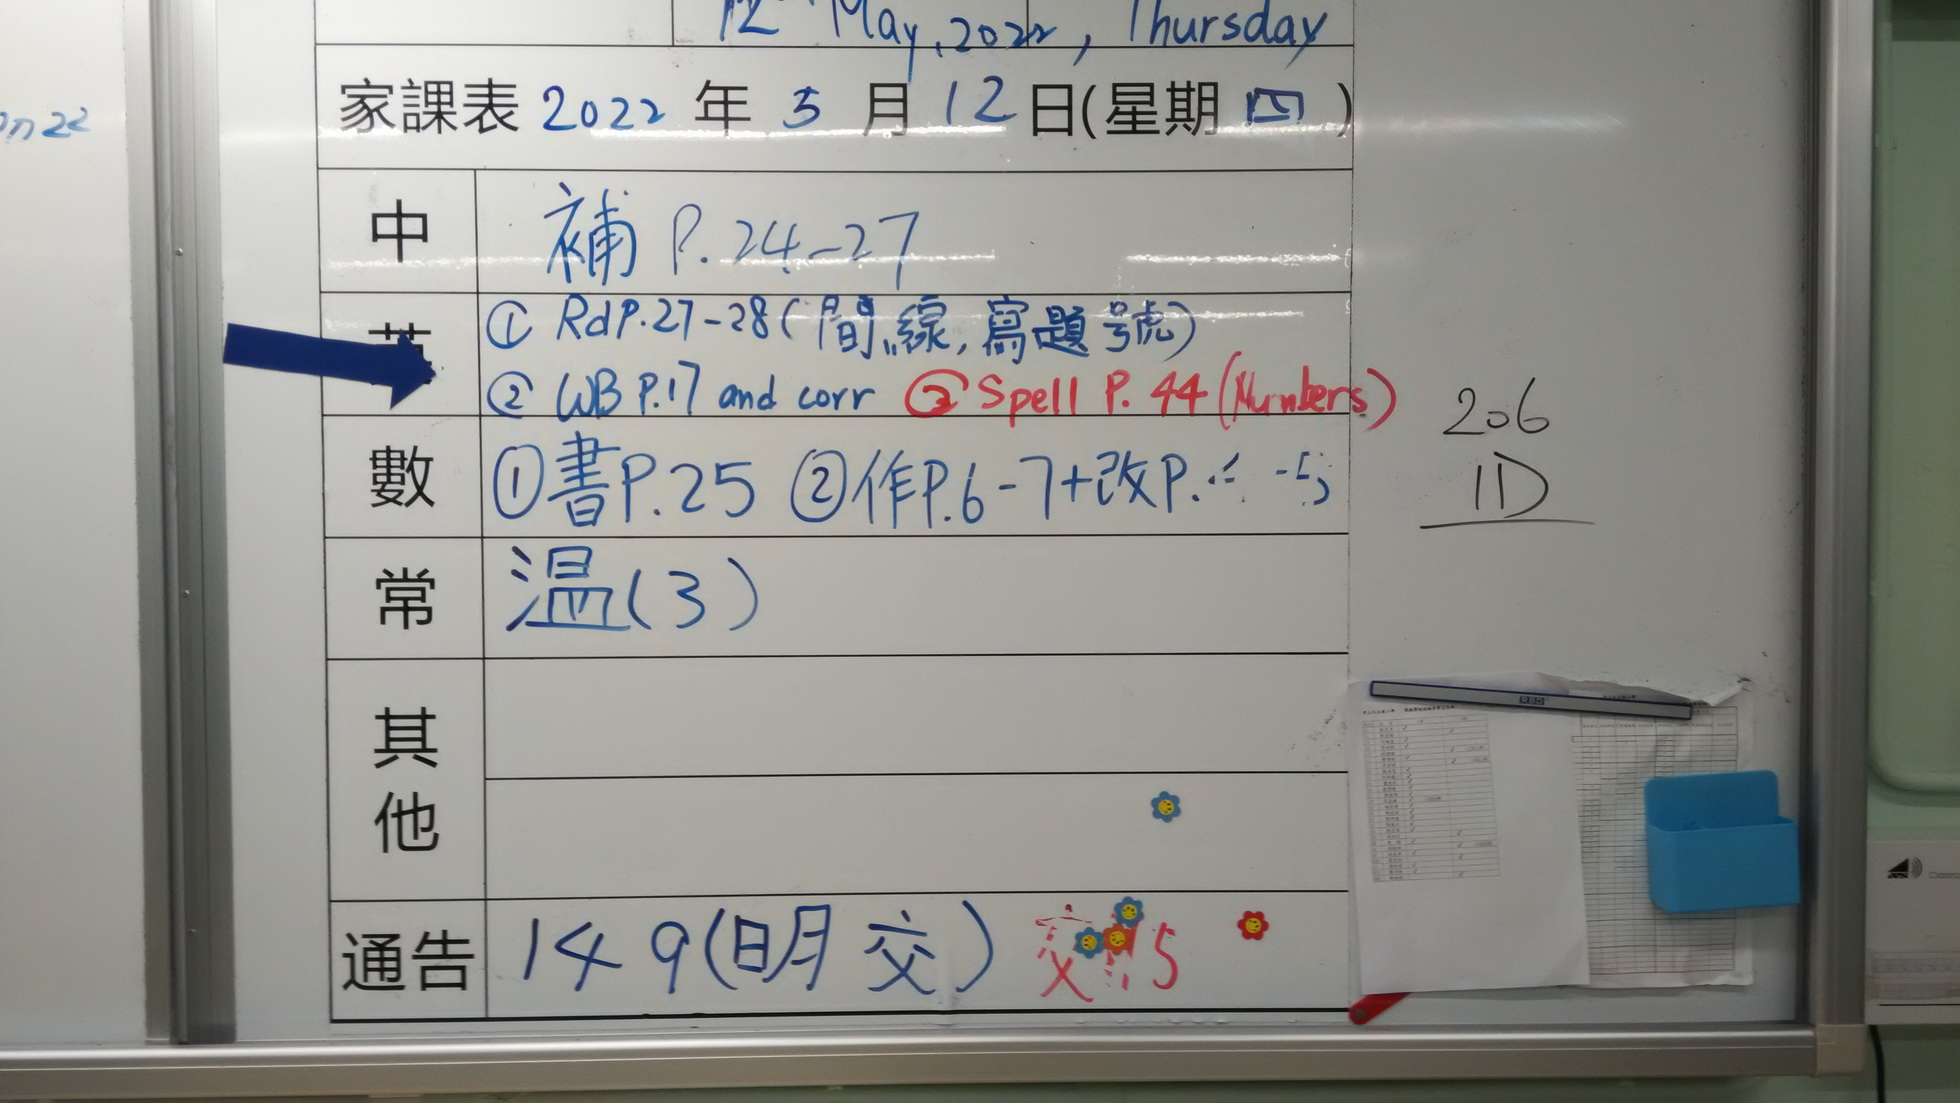 12th May, 2022, Thursday
家課表 2022 年 5 月 12 日(星期 四 )
中 補 P. 24-27
① Rd P.27-28 (間線, 寫題號)
② WB P.17 and corr ③ Spell P. 44 (Numbers)
數 ①書P.25 ②作P.6-7+改P. -5
常 溫(3)
其他
通告 149(明交) 交 5
206
1D